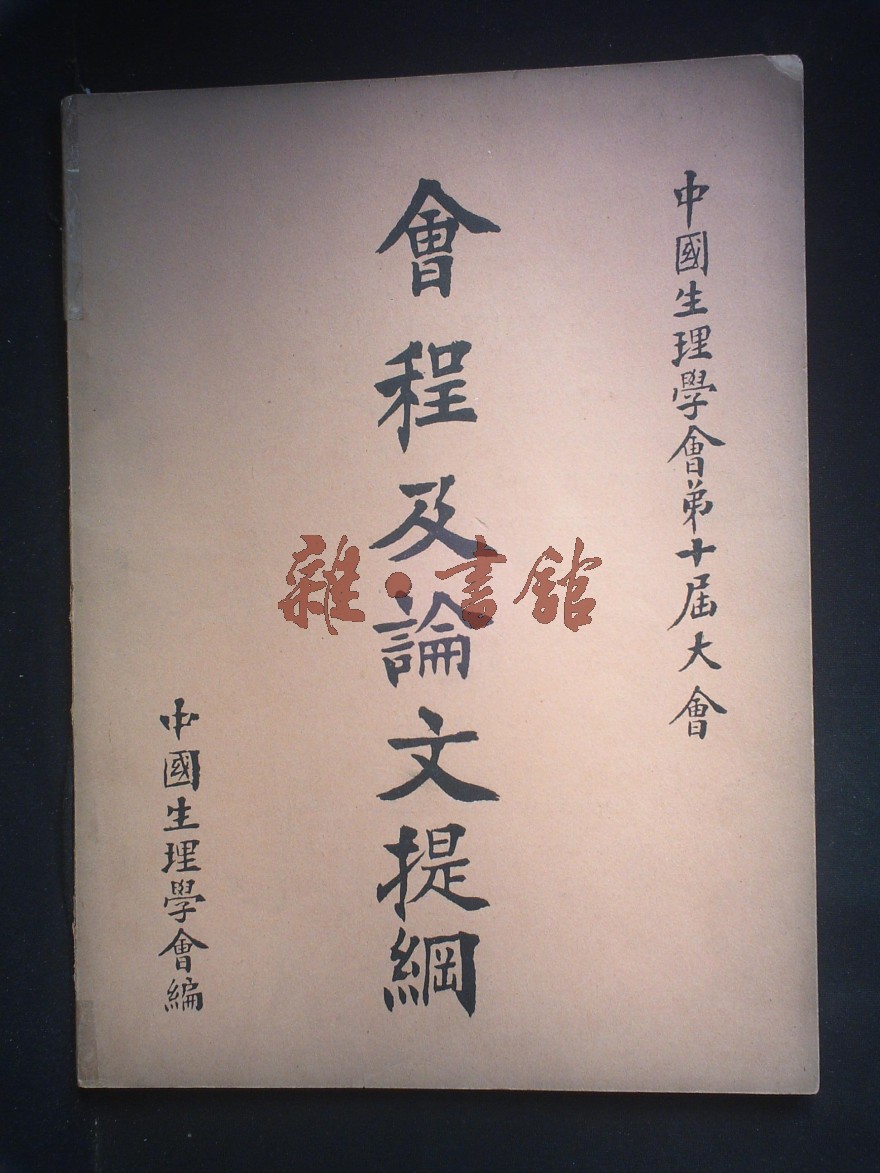 中國生理學會第十屆大會
會程及論文提綱
中國生理學會編
雜·書館